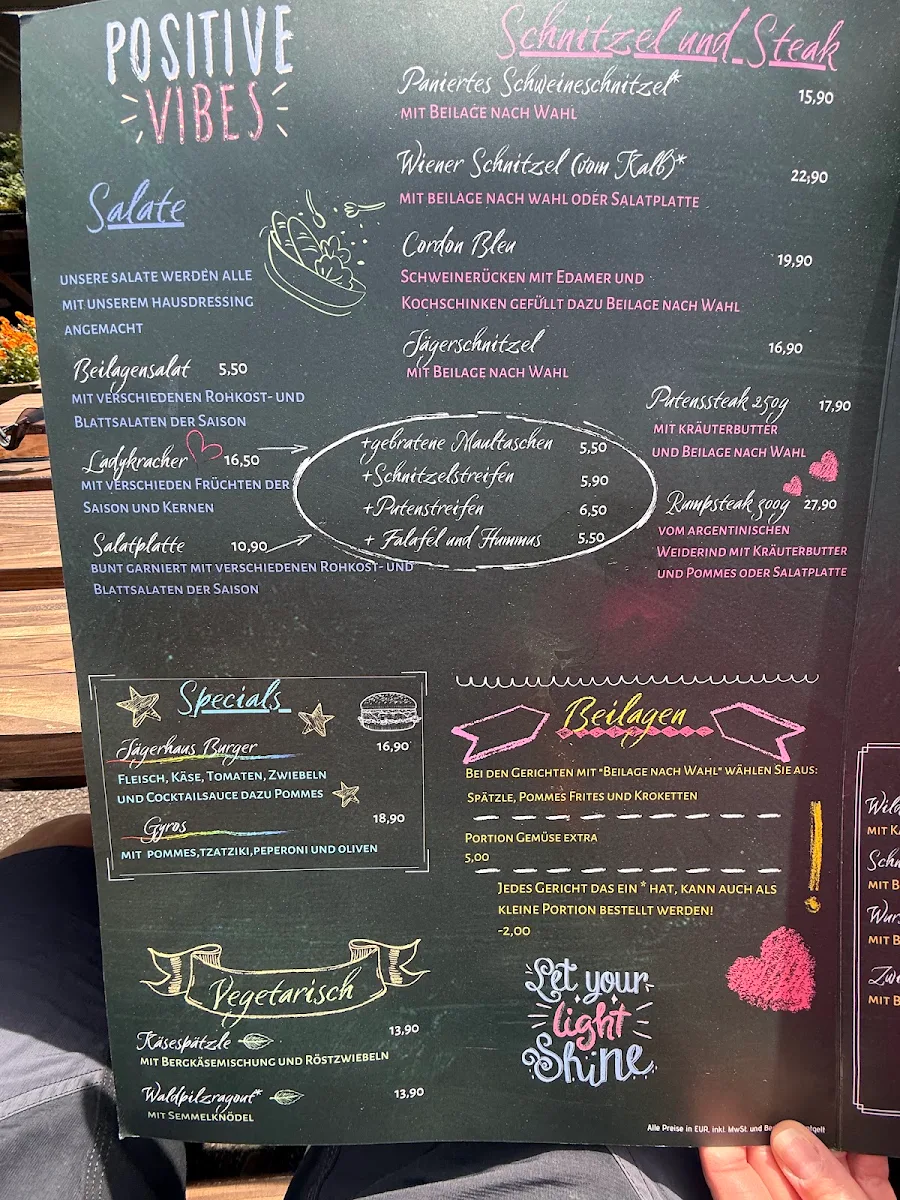 POSITIVE
VIBES
Salate
UNSERE SALATE WERDEN ALLE
MIT UNSEREM HAUSDRESSING
ANGEMACHT
Beilagensalat 5,50
MIT VERSCHIEDENEN ROHKOST- UND
BLATTSALATEN DER SAISON
Ladykracher 16,50
MIT VERSCHIEDEN FRÜCHTEN DER
SAISON UND KERNEN
Salatplatte 10,90
BUNT GARNIERT MIT VERSCHIEDENEN ROHKOST- UND
BLATTSALATEN DER SAISON
+gebratene Maultaschen 5,50
+Schnitzelstreifen 5,90
+Putenstreifen 6,50
+ Falafel und Hummus 5,50
Schnitzel und Steak
Paniertes Schweineschnitzel* 15,90
MIT BEILAGE NACH WAHL
Wiener Schnitzel (vom Kalb)* 22,90
MIT BEILAGE NACH WAHL ODER SALATPLATTE
Cordon Bleu 19,90
SCHWEINERÜCKEN MIT EDAMER UND
KOCHSCHINKEN GEFÜLLT DAZU BEILAGE NACH WAHL
Jägerschnitzel 16,90
MIT BEILAGE NACH WAHL
Putenssteak 250g 17,90
MIT KRÄUTERBUTTER
UND BEILAGE NACH WAHL
Rumpsteak 300g 27,90
VOM ARGENTINISCHEN
WEIDERIND MIT KRÄUTERBUTTER
UND POMMES ODER SALATPLATTE
Specials
Jägerhaus Burger 16,90
FLEISCH, KÄSE, TOMATEN, ZWIEBELN
UND COCKTAILSAUCE DAZU POMMES
Gyros 18,90
MIT POMMES,TZATZIKI,PEPERONI UND OLIVEN
Beilagen
BEI DEN GERICHTEN MIT "BEILAGE NACH WAHL" WÄHLEN SIE AUS:
SPÄTZLE, POMMES FRITES UND KROKETTEN
PORTION GEMÜSE EXTRA
5,00
JEDES GERICHT DAS EIN * HAT, KANN AUCH ALS
KLEINE PORTION BESTELLT WERDEN!
-2,00
Vegetarisch
Käsespätzle 13,90
MIT BERGKÄSEMISCHUNG UND RÖSTZWIEBELN
Waldpilzragout* 13,90
MIT SEMMELKNÖDEL
Let your
light
Shine
Alle Preise in EUR, inkl. MwSt. und